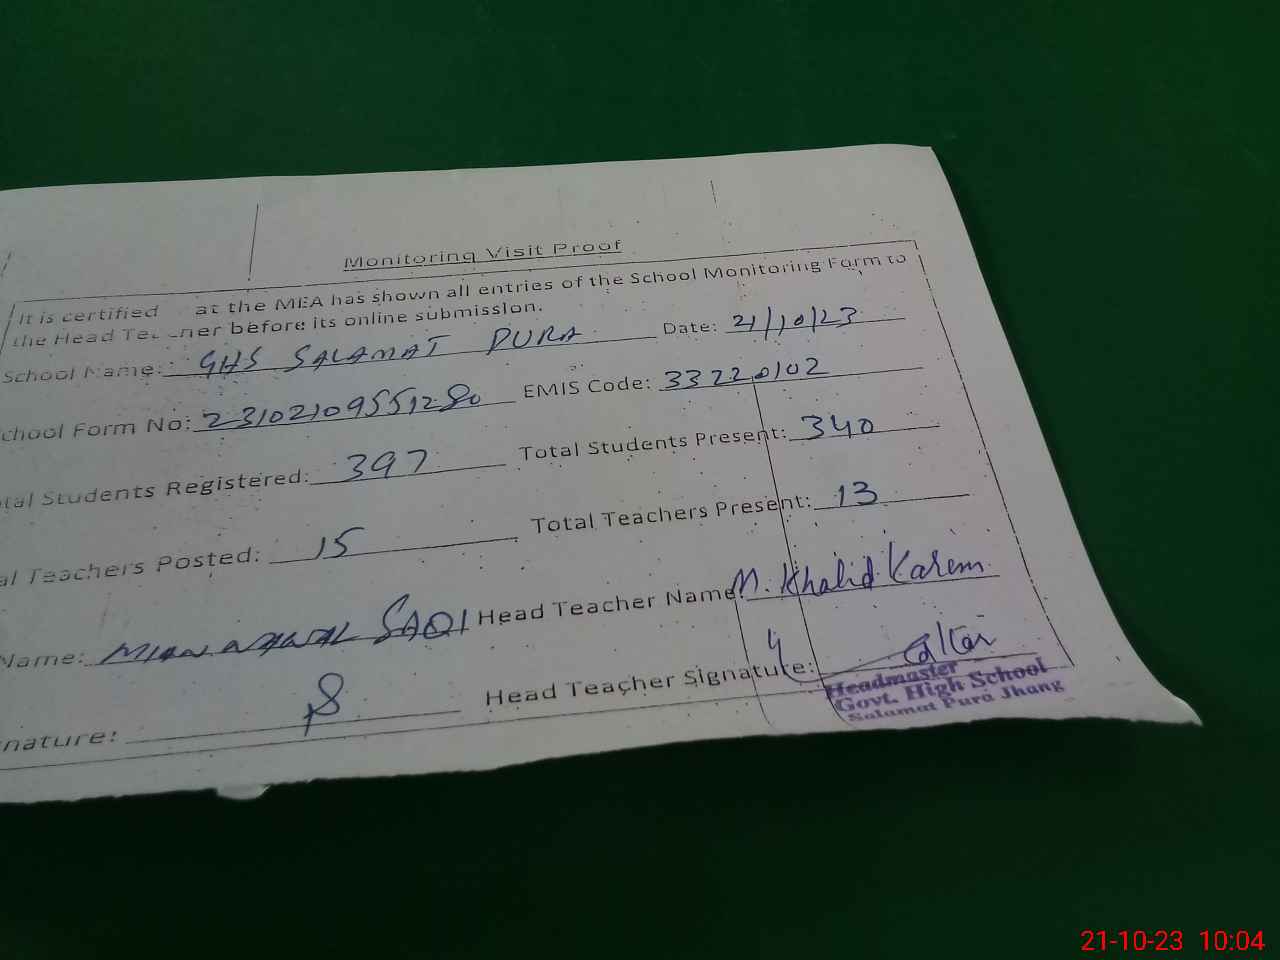 Monitoring Visit Proof
It is certified at the MEA has shown all entries of the School Monitoring Form to
the Head Te cher before its online submission.
School Name: GHS SALAMAT PURA Date: 21/10/23
chool Form No: 23102109551280 EMIS Code: 33220102
tal Students Registered: 397 Total Students Present: 340
al Teachers Posted: 15 Total Teachers Present: 13
Name: MIAN NAWAL SAQI Head Teacher Name: M. Khalid Karem
nature: Head Teacher Signature:
Headmaster
Govt. High School
Salamat Pura Jhang
21-10-23 10:04